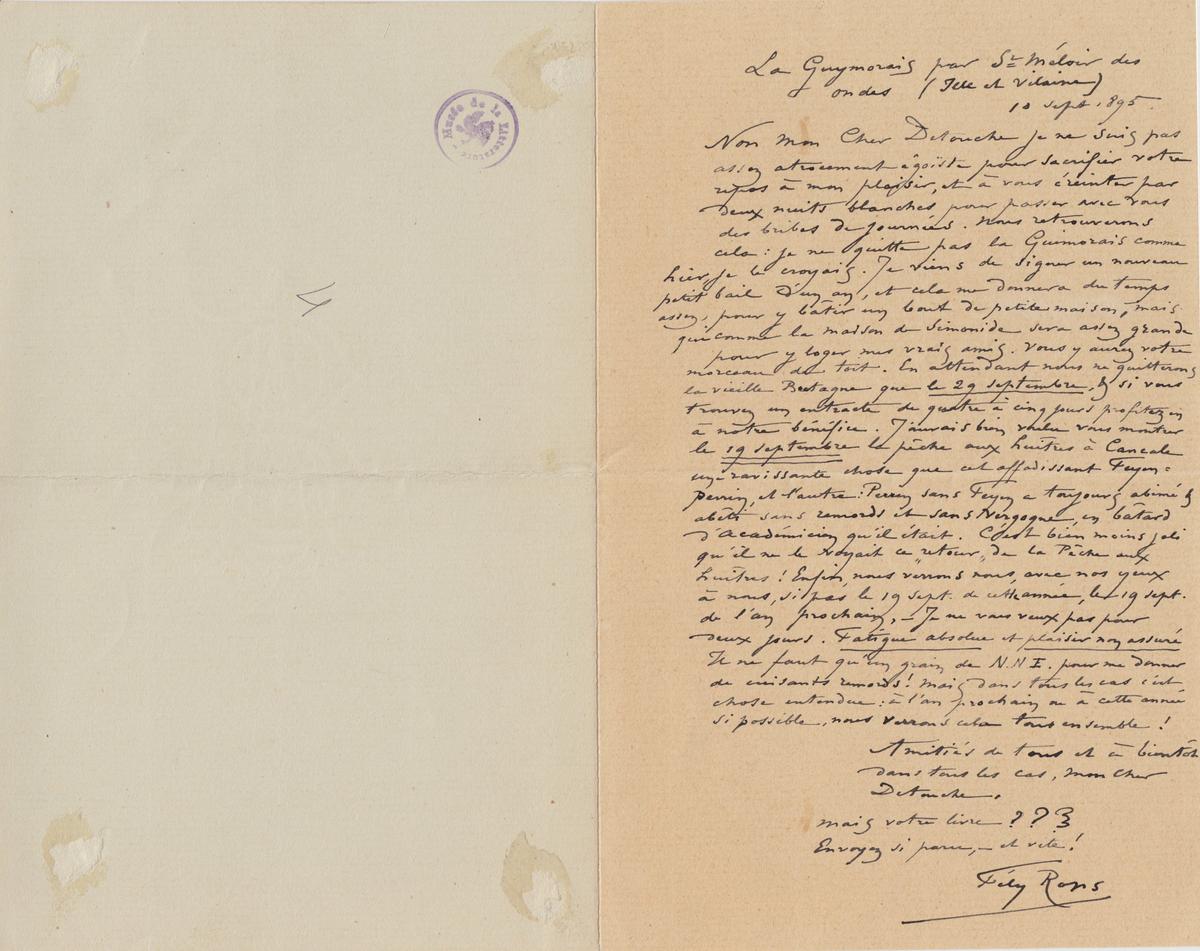 Musée de la Littérature
4
La Guymorais par St Méloir des
ondes (Ille et Vilaine)
10 sept. 1895.
Non mon Cher Detouche je ne suis pas
assez atrocement égoïste pour sacrifier votre
repos à mon plaisir, et à vous éreinter par
deux nuits blanches pour passer avec vous
des bribes de journées. Nous retrouverons
cela : je ne quitte pas la Guimorais comme
hier, je le croyais. Je viens de signer un nouveau
petit bail d'un an, et cela me donnera du temps
assez, pour y bâtir un bout de petite maison, mais
qui comme la maison de Simonide sera assez grande
pour y loger mes vrais amis. Vous y aurez votre
morceau de toit. En attendant nous ne quitterons
la vieille Bretagne que le 29 septembre, & si vous
trouvez un entracte de quatre à cinq jours profitez en
à notre bénéfice. J'aurais bien voulu vous montrer
le 19 septembre la pêche aux huîtres à Cancale
une ravissante chose que cet affadissant Feyen=
Perrin, et l'autre : Perrin sans Feyen a toujours abimé &
abêti sans remords et sans Vergogne, en bâtard
d'Académicien qu'il était. C'est bien moins joli
qu'il ne le voyait ce "retour" de la Pêche aux
huîtres ! Enfin, nous verrons nous, avec nos yeux
à nous, si pas le 19 sept. de cette année, le 19 sept.
de l'an prochain, – Je ne vous veux pas pour
deux jours. Fatigue absolue et plaisir non assuré
Il ne faut qu'un grain de N.N.E. pour me donner
de cuisants remords ! Mais dans tous les cas c'est
chose entendue : à l'an prochain ou à cette année
si possible, nous verrons cela tous ensemble !
Amitiés de tous et à bientôt
dans tous les cas, mon Cher
Detouche.
Mais votre livre ???
Envoyez si paru, – et vite !
Fély Rops